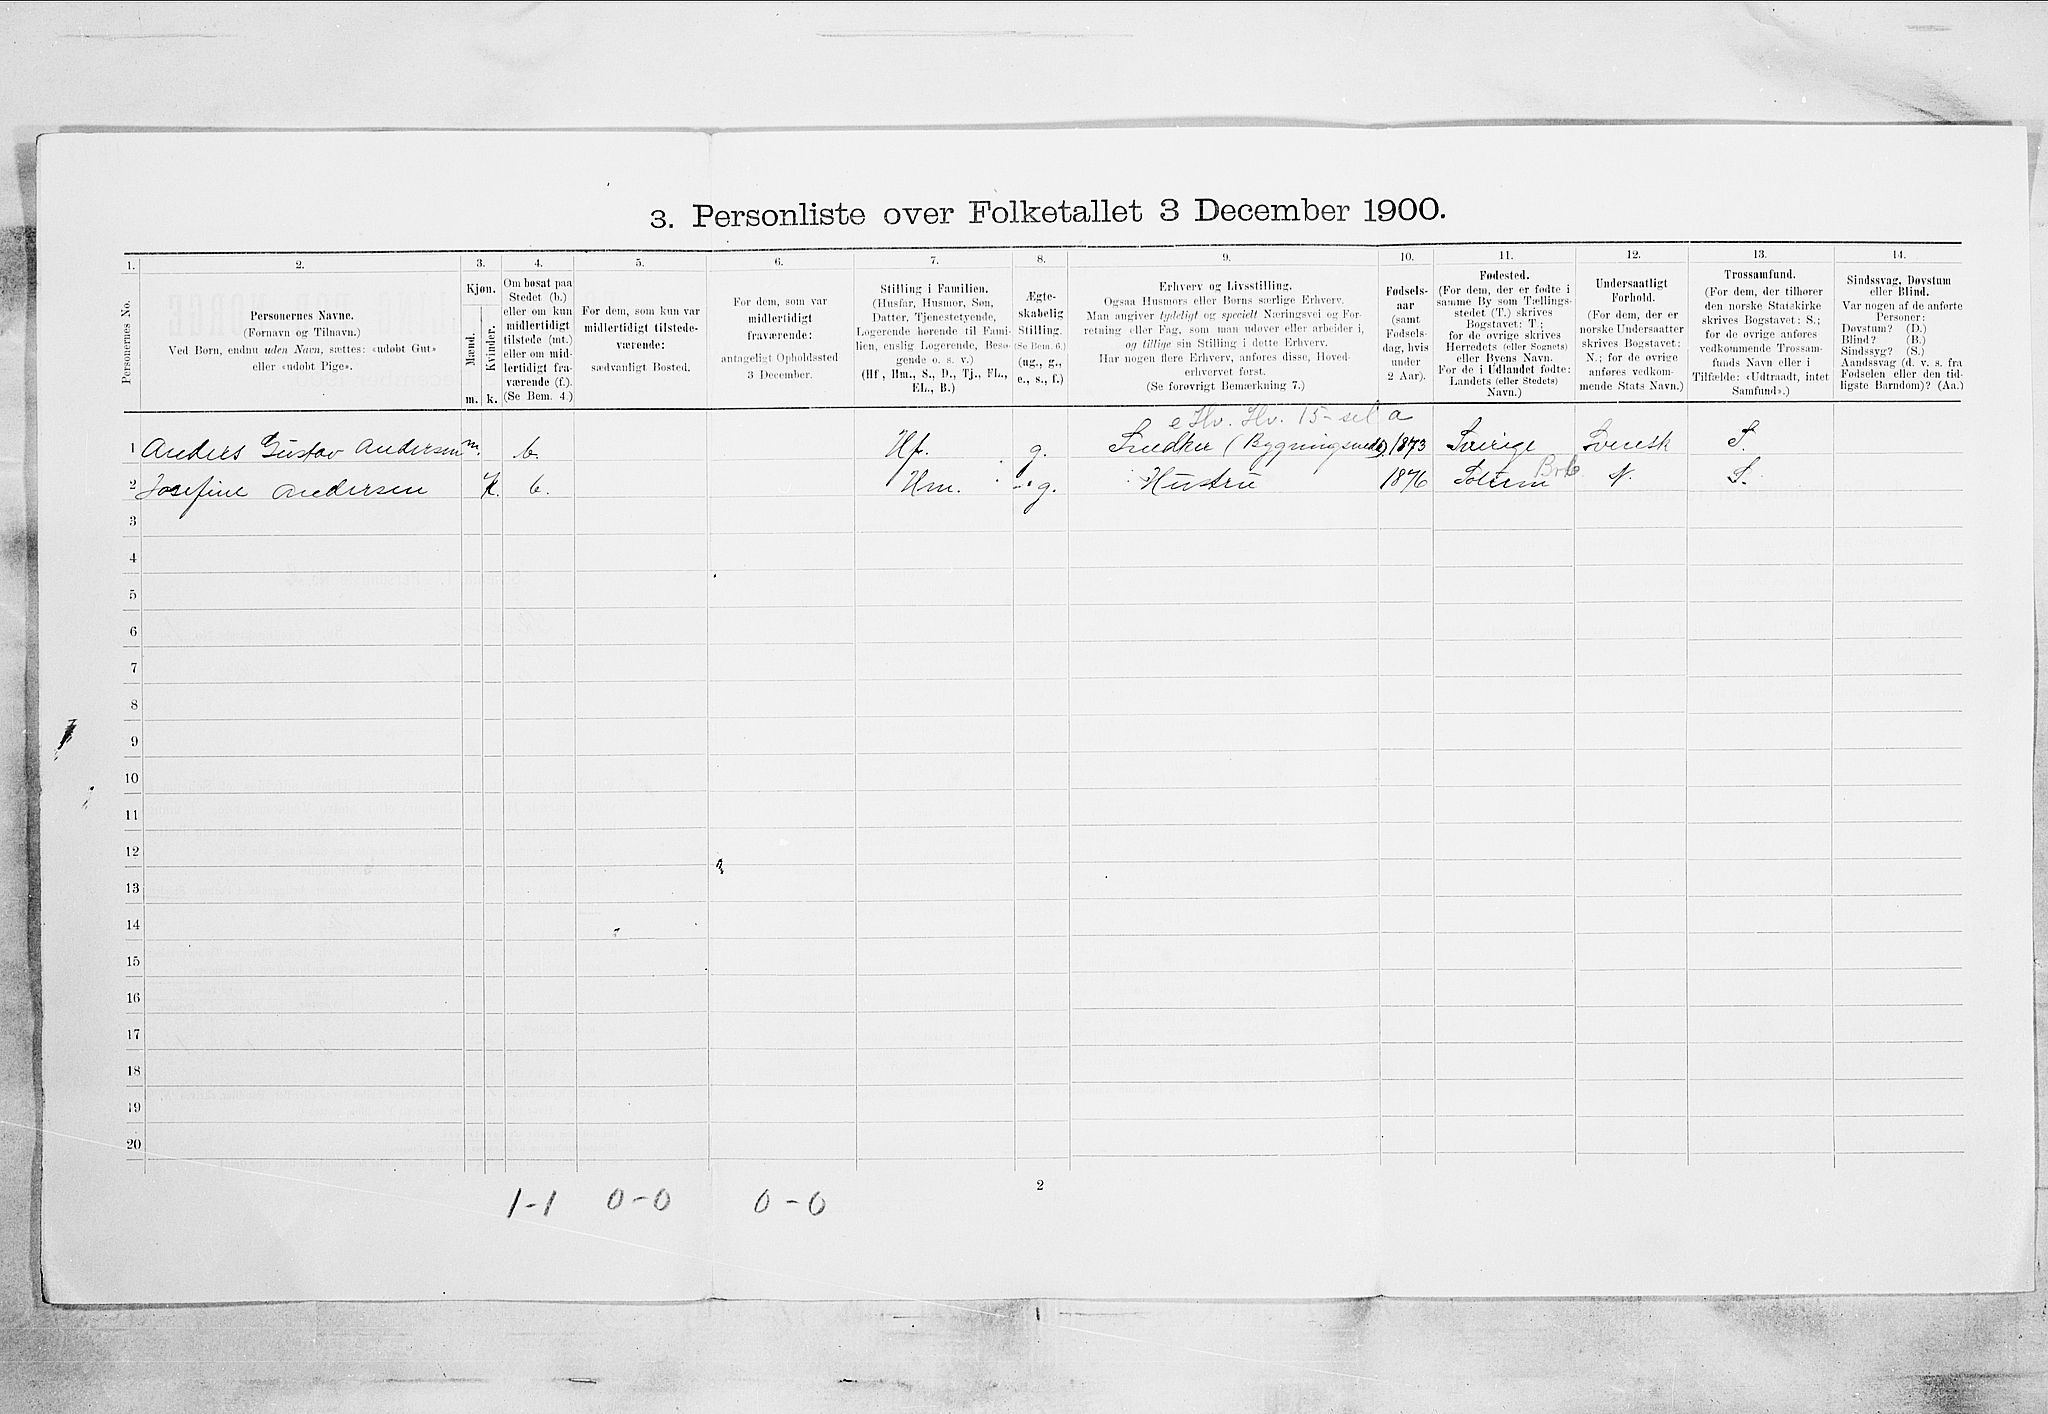 3. Personliste over Folketallet 3 December 1900.
1. 2. 3. 4. 5. 6. 7. 8. 9. 10. 11. 12. 13. 14.
Personernes No.
Personernes Navne.
(Fornavn og Tilnavn.)
Ved Børn, endnu uden Navn, sættes: «udøbt Gut»
eller «udøbt Pige».
Kjøn.
Mænd.
Kvinder.
m. k.
Om bosat paa
Stedet (b.)
eller om kun
midlertidigt
tilstede (mt.)
eller om mid-
lertidigt fra-
værende (f.).
(Se Bem. 4.)
For dem, som kun var
midlertidigt tilstede-
værende:
sædvanligt Bosted.
For dem, som var
midlertidigt
fraværende:
antageligt Opholdssted
3 December.
Stilling i Familien.
(Husfar, Husmor, Søn,
Datter, Tjenestetyende,
Logerende hørende til Fami-
lien, enslig Logerende, Besø-
gende o. s. v.)
(Hf., Hm., S., D., Tj., FL.,
EL., B.)
Ægte-
skabelig
Stilling.
(Se Bem. 6.)
(ug., g.,
e., s., f.)
Erhverv og Livsstilling.
Ogsaa Husmors eller Børns særlige Erhverv.
Man angiver tydeligt og specielt Næringsvei og For-
retning eller Fag, som man udøver eller arbeider i,
og tillige sin Stilling i dette Erhverv.
Har nogen flere Erhverv, anføres disse, Hoved-
erhvervet først.
(Se forøvrigt Bemærkning 7.)
Fødsels-
aar
(samt
Fødsels-
dag, hvis
under
2 Aar).
Fødested.
(For dem, der er fødte i
samme By som Tællings-
stedet (T.) skrives
Bogstavet: T;
for de øvrige skrives
Herredets (eller Sognets)
eller Byens Navn.
For de i Udlandet fødte:
Landets (eller Stedets)
Navn.)
Undersaatligt
Forhold.
(For dem, der er
norske Undersaatter
skrives Bogstavet:
N.; for de øvrige
anføres vedkom-
mende Stats Navn.)
Trossamfund.
(For dem, der tilhører
den norske Statskirke
skrives Bogstavet: S.;
for de øvrige anføres
vedkommende Trossam-
funds Navn eller i
Tilfælde: «Udtraadt, intet
Samfund».)
Sindssvag, Døvstum
eller Blind.
Var nogen af de anførte
Personer:
Døvstum? (D.)
Blind? (B.)
Sindssyg? (S.)
Aandssvag (d. v. s. fra
Fødselen eller den tid-
ligste Barndom)? (Aa.)
e Hv. Hv. 15- sel a
1 Anders Gustav Andersen m. b. Hf. g. Snedker (Bygningsned.) 1873 Sverige Svensk S.
2 Josefine Andersen k. b. Hm. g. Hustru 1876 Solum Brb. N. S.
3
4
5
6
7
8
9
10
11
12
13
14
15
16
17
18
19
20
2
1-1 0-0 0-0